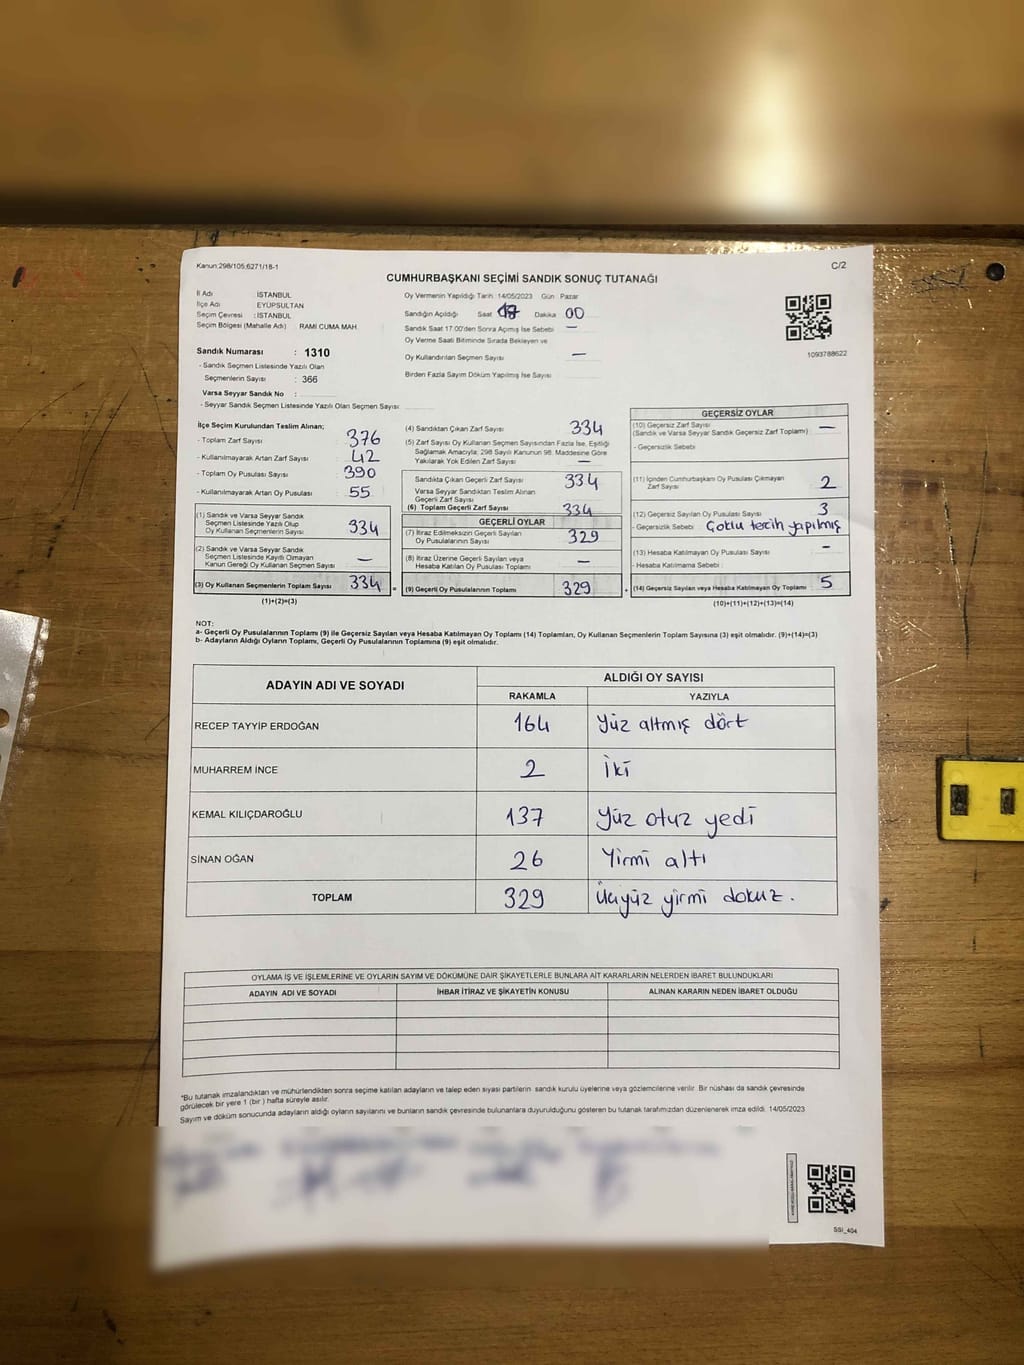 Kanun:298/105;6271/18-1
C/2
CUMHURBAŞKANI SEÇİMİ SANDIK SONUÇ TUTANAĞI
İl Adı : İSTANBUL
İlçe Adı : EYÜPSULTAN
Seçim Çevresi : İSTANBUL
Seçim Bölgesi (Mahalle Adı) : RAMİ CUMA MAH.
Sandık Numarası : 1310
- Sandık Seçmen Listesinde Yazılı Olan
Seçmenlerin Sayısı : 366
Varsa Seyyar Sandık No :
- Seyyar Sandık Seçmen Listesinde Yazılı Olan Seçmen Sayısı:
Oy Vermenin Yapıldığı Tarih: 14/05/2023 Gün : Pazar
Sandığın Açıldığı Saat 17 Dakika 00
Sandık Saat 17.00'den Sonra Açımış İse Sebebi —
Oy Verme Saati Bitiminde Sırada Bekleyen ve
Oy Kullandırılan Seçmen Sayısı —
Birden Fazla Sayım Döküm Yapılmış İse Sayısı
1093788622
İlçe Seçim Kurulundan Teslim Alınan;
- Toplam Zarf Sayısı 376
- Kullanılmayarak Artan Zarf Sayısı 42
- Toplam Oy Pusulası Sayısı 390
- Kullanılmayarak Artan Oy Pusulası 55
(1) Sandık ve Varsa Seyyar Sandık
Seçmen Listesinde Yazılı Olup
Oy Kullanan Seçmenlerin Sayısı 334
(2) Sandık ve Varsa Seyyar Sandık
Seçmen Listesinde Kayıtlı Olmayan
Kanun Gereği Oy Kullanan Seçmen Sayısı —
(3) Oy Kullanan Seçmenlerin Toplam Sayısı 334 =
(1)+(2)=(3)
(4) Sandıktan Çıkan Zarf Sayısı 334
(5) Zarf Sayısı Oy Kullanan Seçmen Sayısından Fazla İse, Eşitliği
Sağlamak Amacıyla; 298 Sayılı Kanunun 98. Maddesine Göre
Yakılarak Yok Edilen Zarf Sayısı —
Sandıkta Çıkan Geçerli Zarf Sayısı 334
Varsa Seyyar Sandıktan Teslim Alınan
Geçerli Zarf Sayısı
(6) Toplam Geçerli Zarf Sayısı 334
GEÇERLİ OYLAR
(7) İtiraz Edilmeksizin Geçerli Sayılan
Oy Pusulalarının Sayısı 329
(8) İtiraz Üzerine Geçerli Sayılan veya
Hesaba Katılan Oy Pusulası Toplamı —
(9) Geçerli Oy Pusulalarının Toplamı 329 +
GEÇERSİZ OYLAR
(10) Geçersiz Zarf Sayısı
(Sandık ve Varsa Seyyar Sandık Geçersiz Zarf Toplamı) —
- Geçersizlik Sebebi
(11) İçinden Cumhurbaşkanı Oy Pusulası Çıkmayan
Zarf Sayısı 2
(12) Geçersiz Sayılan Oy Pusulası Sayısı 3
- Geçersizlik Sebebi Çoklu tercih yapılmış
(13) Hesaba Katılmayan Oy Pusulası Sayısı -
- Hesaba Katılmama Sebebi :
(14) Geçersiz Sayılan veya Hesaba Katılmayan Oy Toplamı 5
(10)+(11)+(12)+(13)=(14)
NOT:
a- Geçerli Oy Pusulalarının Toplamı (9) ile Geçersiz Sayılan veya Hesaba Katılmayan Oy Toplamı (14) Toplamları, Oy Kullanan Seçmenlerin Toplam Sayısına (3) eşit olmalıdır. (9)+(14)=(3)
b- Adayların Aldığı Oyların Toplamı, Geçerli Oy Pusulalarının Toplamına (9) eşit olmalıdır.
ADAYIN ADI VE SOYADI ALDIĞI OY SAYISI
RAKAMLA YAZIYLA
RECEP TAYYİP ERDOĞAN 164 Yüz altmış dört
MUHARREM İNCE 2 İki
KEMAL KILIÇDAROĞLU 137 Yüz otuz yedi
SİNAN OĞAN 26 Yirmi altı
TOPLAM 329 Üçyüz yirmi dokuz.
OYLAMA İŞ VE İŞLEMLERİNE VE OYLARIN SAYIM VE DÖKÜMÜNE DAİR ŞİKAYETLERLE BUNLARA AİT KARARLARIN NELERDEN İBARET BULUNDUKLARI
ADAYIN ADI VE SOYADI İHBAR İTİRAZ VE ŞİKAYETİN KONUSU ALINAN KARARIN NEDEN İBARET OLDUĞU
*Bu tutanak imzalandıktan ve mühürlendikten sonra seçime katılan adayların ve talep eden siyasi partilerin sandık kurulu üyelerine veya gözlemcilerine verilir. Bir nüshası da sandık çevresinde
görülecek bir yere 1 (bir ) hafta süreyle asılır.
Sayım ve döküm sonucunda adayların aldığı oyların sayılarını ve bunların sandık çevresinde bulunanlara duyurulduğunu gösteren bu tutanak tarafımızdan düzenlenerek imza edildi. 14/05/2023
SSİ_404